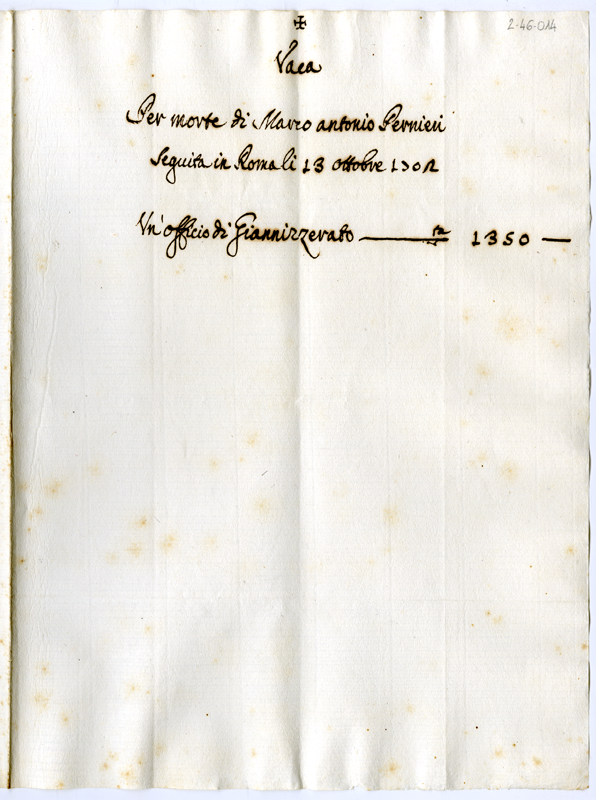 2-46-014
✠
Vaca
Per morte di Marco antonio Pernieri
Seguita in Roma li 13 ottobre 1702
Un' officio di Giannizzerato 1350